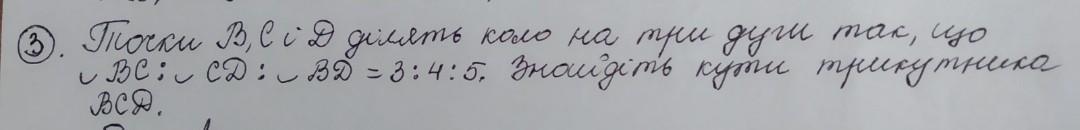 3. Точки B, C і D ділять коло на три дуги так, що
◡ BC : ◡ CD : ◡ BD = 3 : 4 : 5. Знайдіть кути трикутника
BCD.